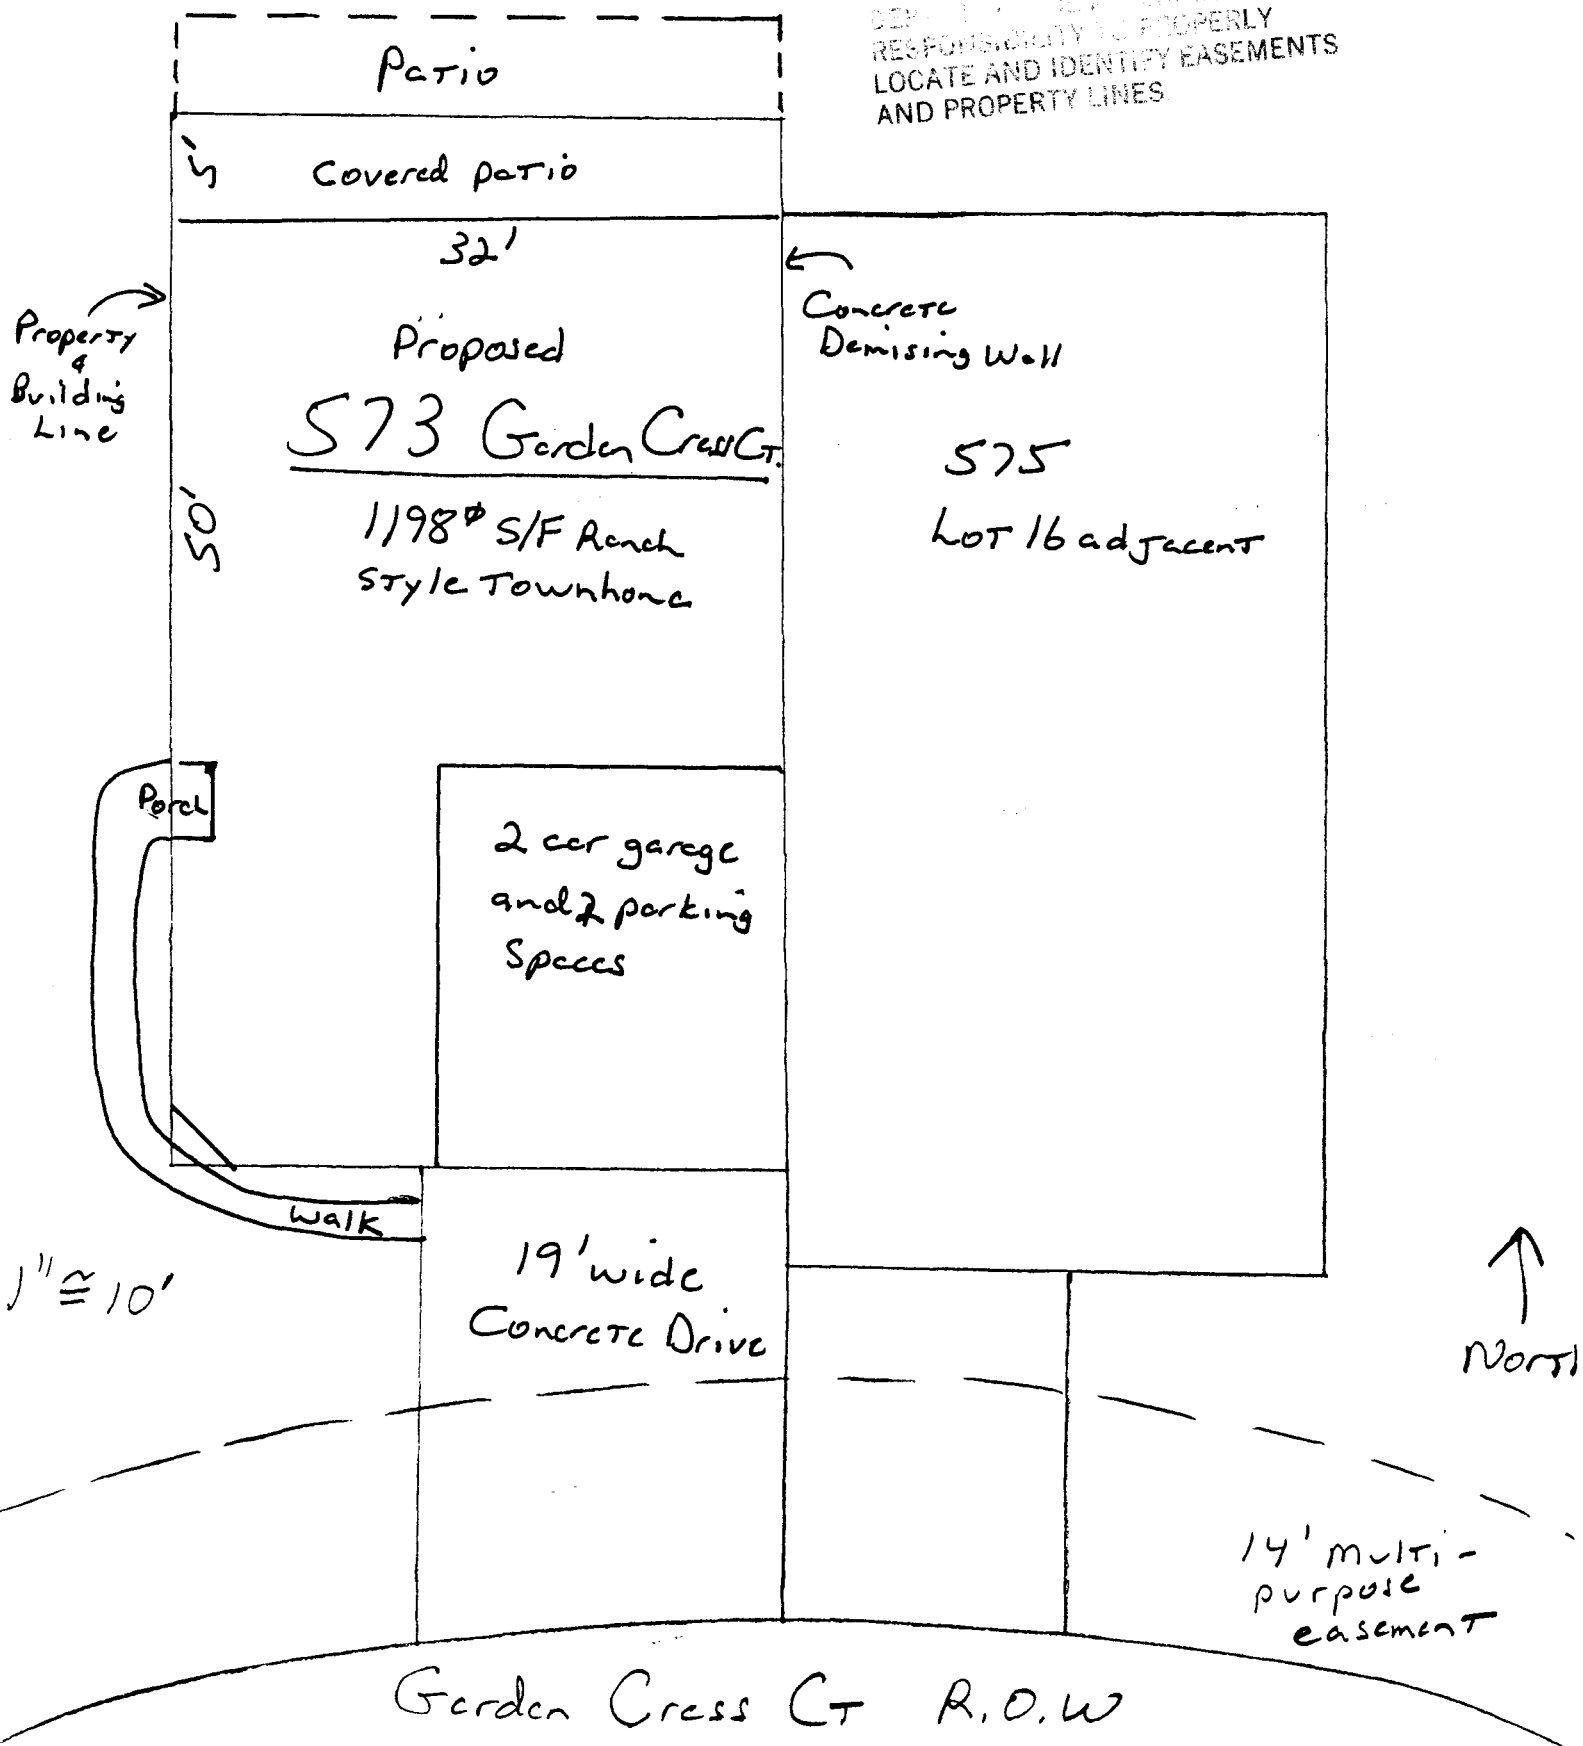 Patio
RESPONSIBILITY TO PROPERLY
LOCATE AND IDENTIFY EASEMENTS
AND PROPERTY LINES
5'
Covered patio
32'
Property
&
Building
Line
Concrete
Demising Wall
Proposed
573 Garden Cress CT.
1198 S/F Ranch
Style Townhome
50'
575
Lot 16 adjacent
Porch
2 car garage
and 2 parking
Spaces
Walk
1" ≅ 10'
19' wide
Concrete Drive
North
14' multi-
purpose
easement
Garden Cress CT R.O.W